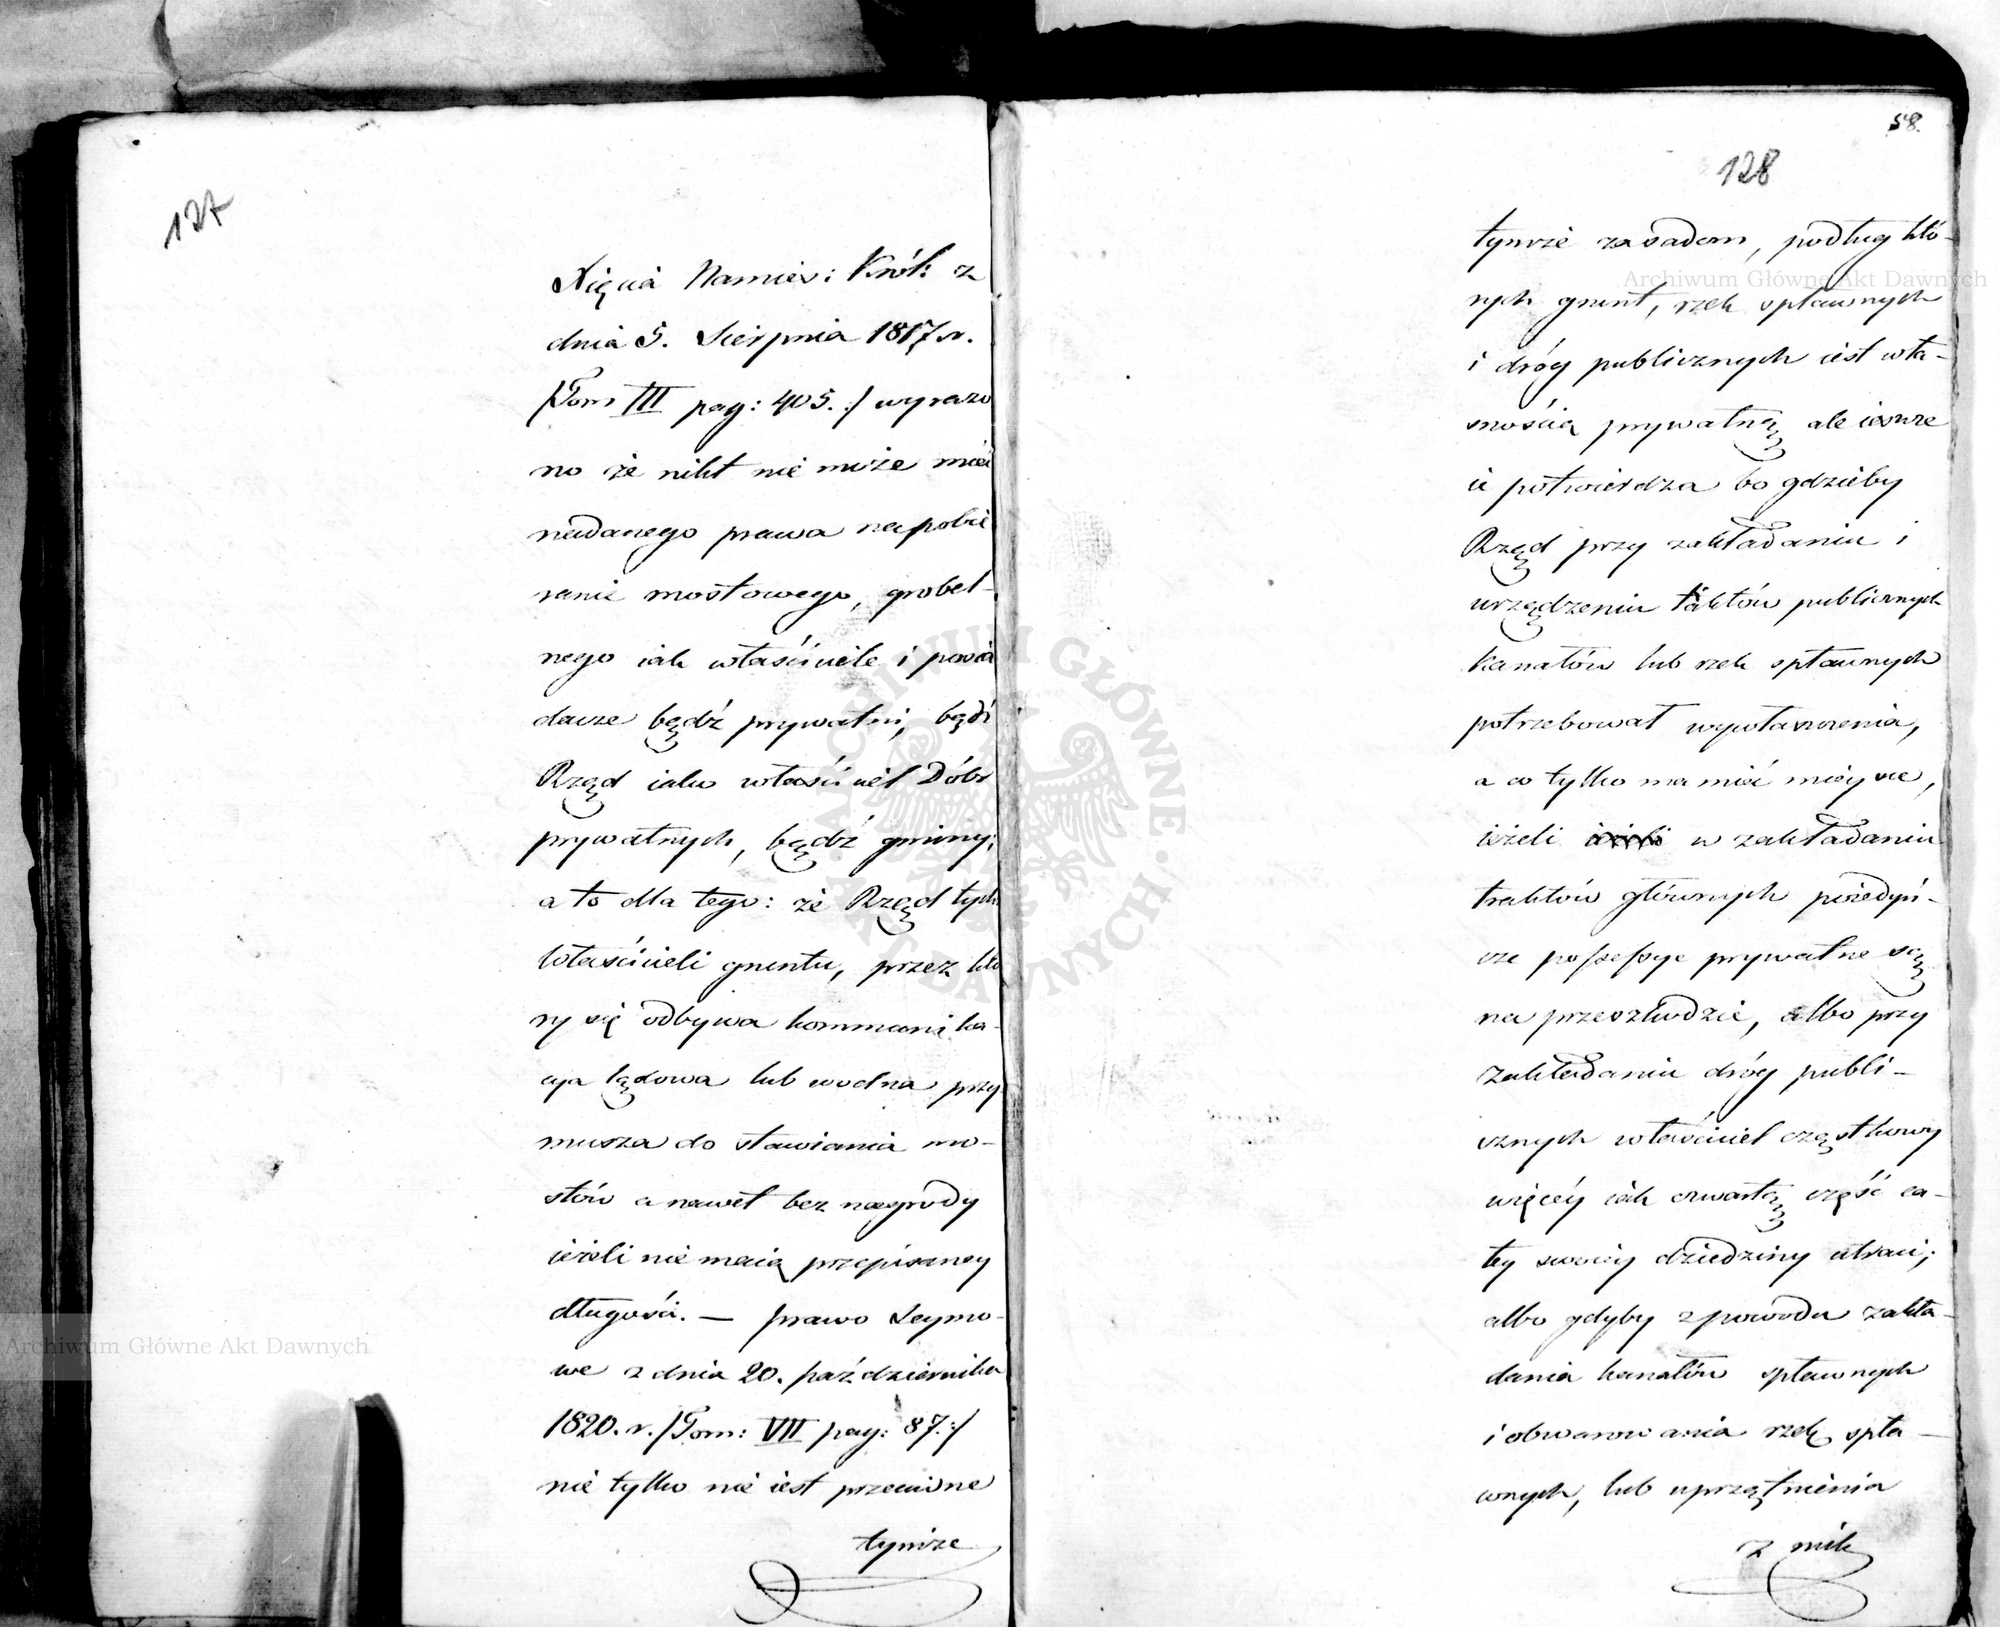 127
Xięcia Namies: Król: z
dnia 5. Sierpnia 1817 r.
/Tom III pag: 405.:/ wyrazo
no że nikt nie może mieć
nadanego prawa na pobie
ranie mostowego, grobel-
nego iak właściciele i posia
dacze bądź prywatni, bądź
Rząd iako właściciel Dóbr
prywatnych, bądź gminy;
a to dla tego: że Rząd tych
właścicieli gruntu, przez któ
ry się odbywa kommunika-
cya lądowa lub wodna przy
musza do stawiania mo-
stów a nawet bez nagrody
ieżeli nie maią przepisaney
długości. — prawo Seymo-
we z dnia 20. października
1820. r. /Tom: VII pag: 87.:/
nie tylko nie iest przeciwne
tymże
58.
128
tymże zasadom, podług któ-
rych grunt, rzek spławnych
i dróg publicznych iest wła-
snością prywatną ale ieszcze
ie potwierdza bo gdzieby
Rząd przy zakładaniu i
urządzeniu taktów publicznych
kanałów lub rzek spławnych
potrzebował wywłaszczenia,
a co tylko ma mieć mieysce,
ieżeli w zakładaniu
traktów głównych poiedyń-
cze possessye prywatne są
na przeszkodzie, albo przy
zakładaniu dróg publi-
cznych właściciel cząstkowy
więcéy iak czwartą część ca-
łey swoiéy dziedziny utraci;
albo gdyby z powodu zakła-
dania kanałów spławnych
i obwarowania rzek spła-
wnych, lub uprzątnienia
z nich
Archiwum Główne Akt Dawnych
Archiwum Główne Akt Dawnych
ARCHIWUM GŁÓWNE AKT DAWNYCH